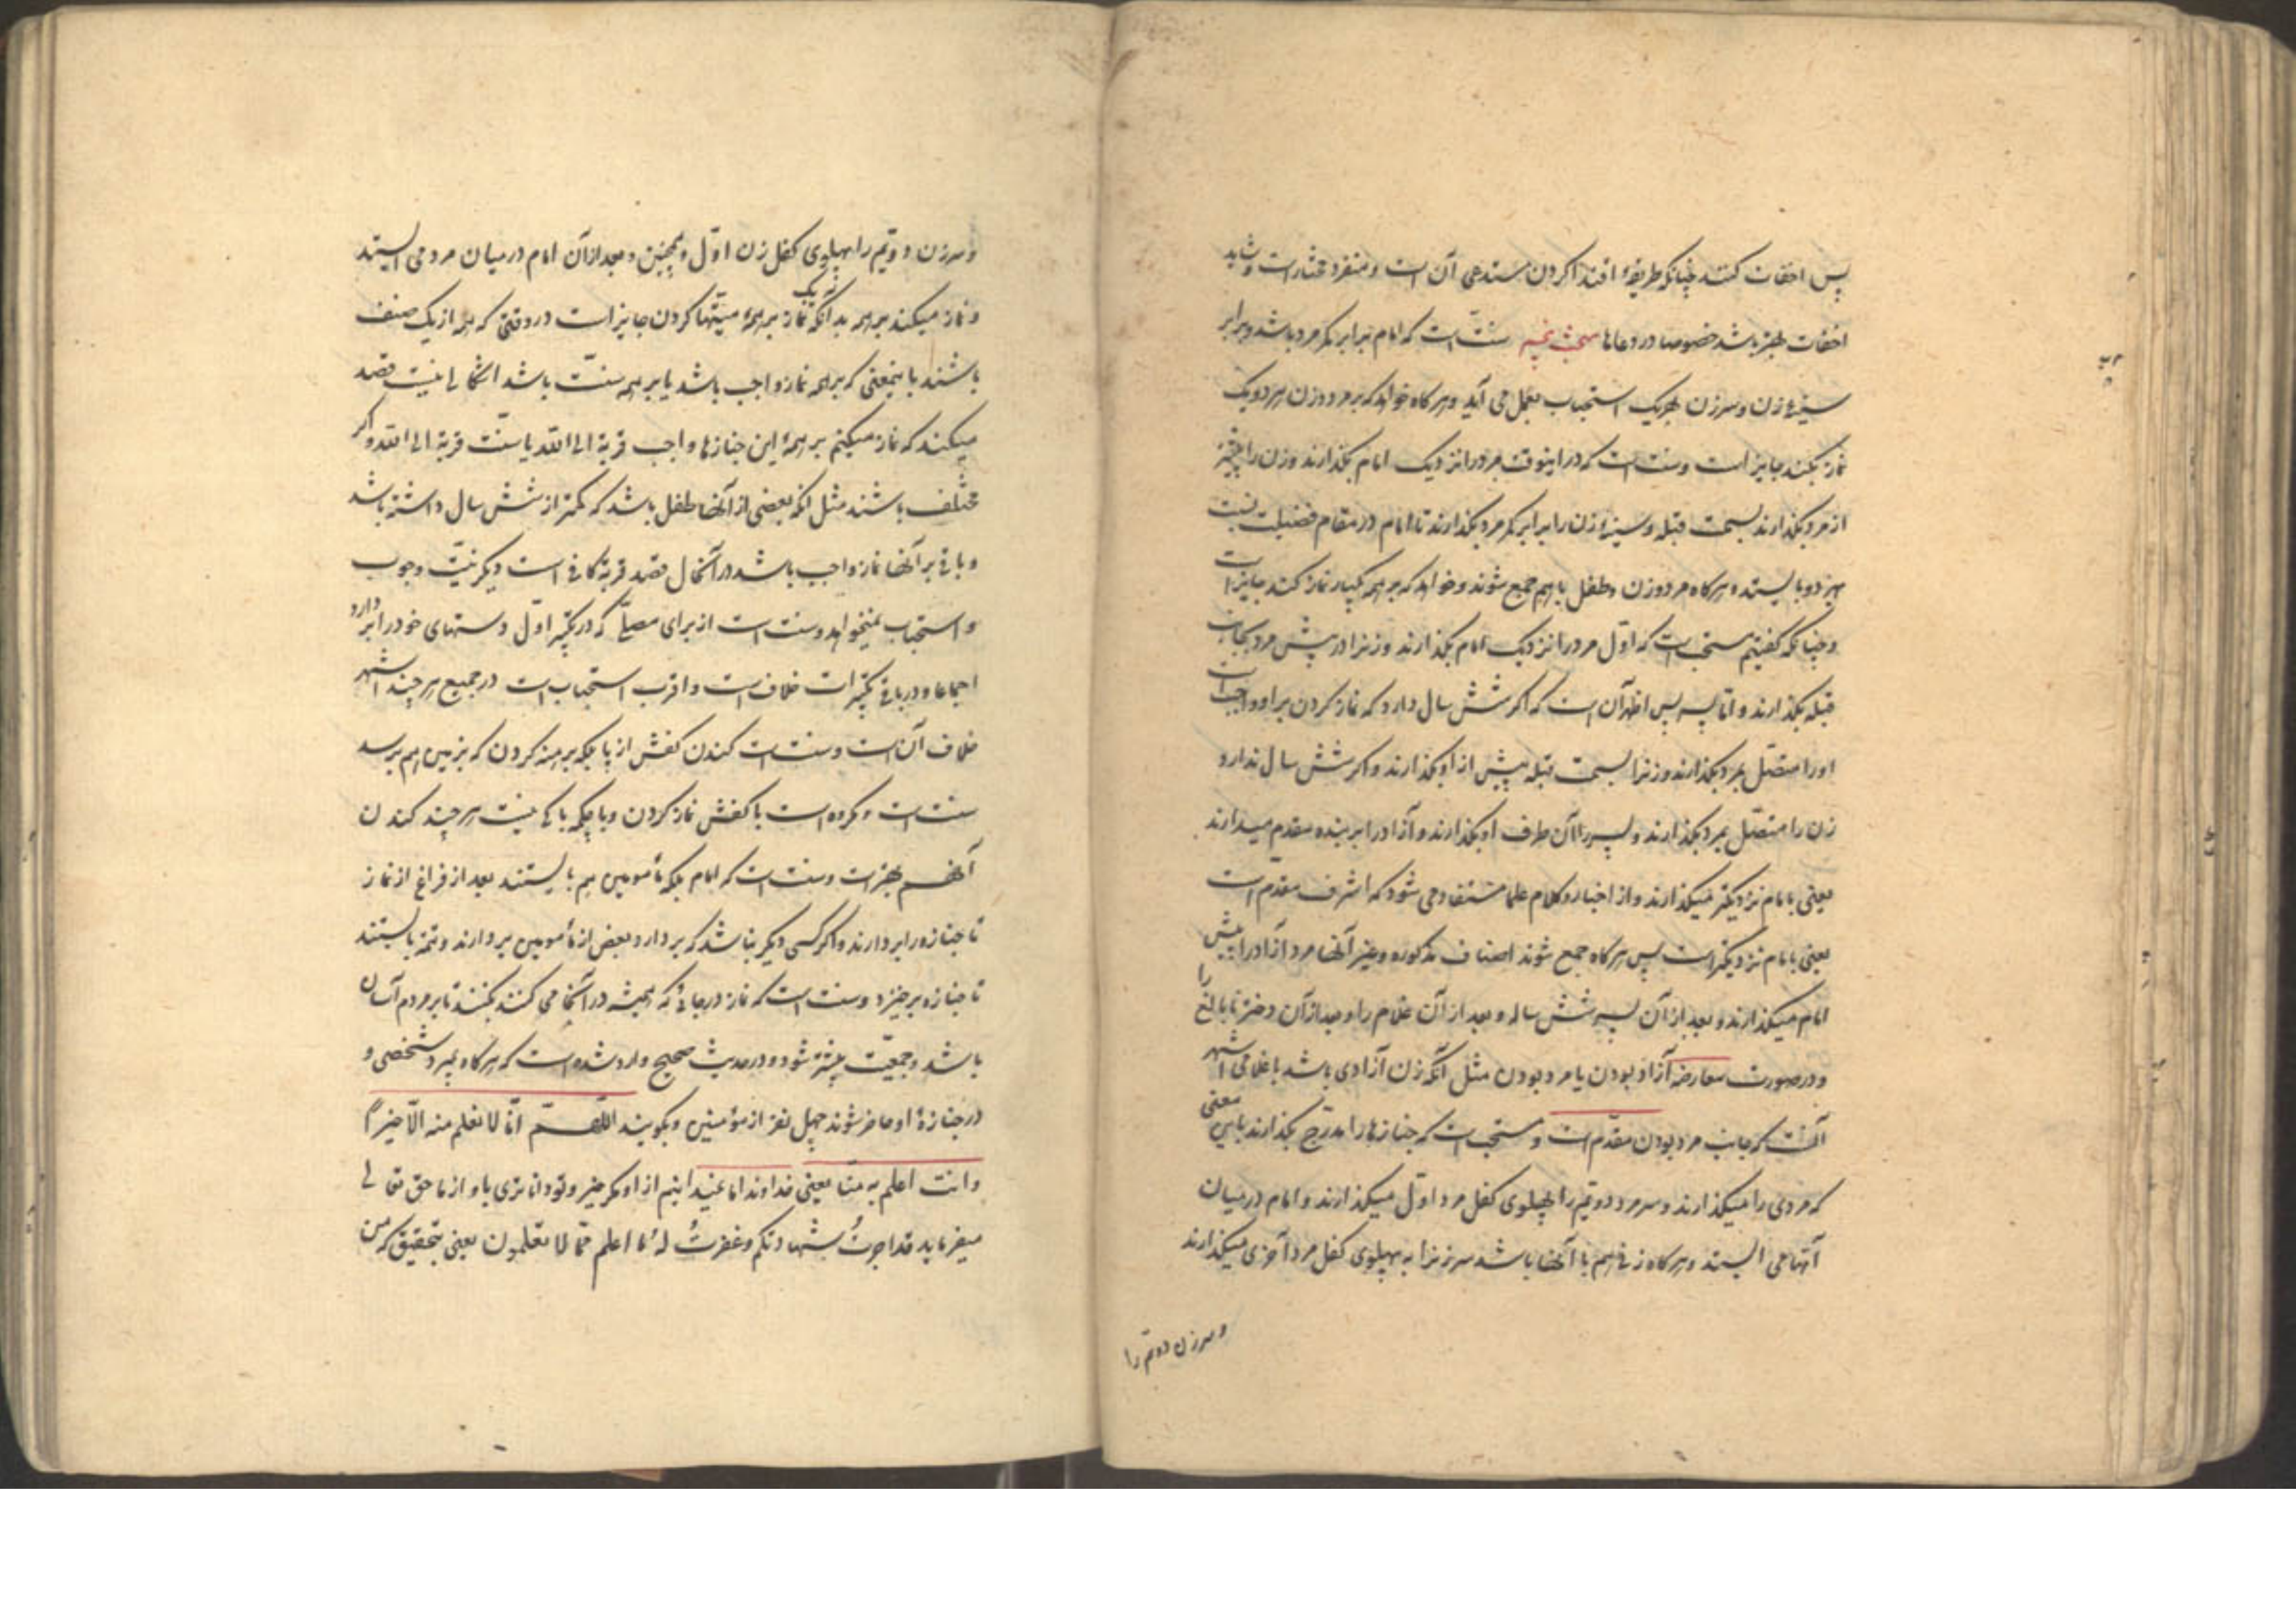 پس اخفات کند چنانکه طریقهٔ اقتدا کردن مستدعی آن است و منفرد مختار است و شاید
اخفات بهتر باشد خصوصا در دعاها مبحث پنجم سنّت است که امام برابر کمر مرد باشد و برابر
سینهٔ زن و سر زن بهر یک استحباب بعمل می آید و هر کاه خواهد که بر مرد و زن هر دو یک
نماز بکند جایز است و سنت است که در اینوقت مرد را نزدیک امام بکذارند و زن را پیشتر
از مرد بکذارند بسمت قبله و سینهٔ زن را برابر کمر مرد بکذارند تا امام در مقام فضیلت نسبت
بهر دو بایستد و هر کاه مرد و زن و طفل با هم جمع شوند و خواهد که بر همه یکبار نماز کند جایز است
و چنانکه کفتیم مستحب است که اوّل مرد را نزدیک امام بکذارند و زنرا در پیش مرد بجانب
قبله بکذارند و امّا پسر پس اظهر آن است که اکر شش سال دارد که نماز کردن بر او واجب است
او را متصّل بمرد بکذارند و زنرا بسمت قبله پیش از او بکذارند و اکر شش سال ندارد
زن را متصّل بمرد بکذارند و پسر را آن طرف او بکذارند و آزاد را بر بنده مقدم میدارند
یعنی بامام نزدیکتر میکذارند و از اخبار و کلام علما مستفاد می شود که اشرف مقدّم است
یعنی بامام نزدیکتر است پس هر کاه جمع شوند اصناف مذکوره و غیر آنها مرد آزاد را پیش
امام میکذارند و بعد از آن پسر شش ساله و بعد از آن غلام را و بعد از آن دختر نابالغ را
و در صورت معارضه آزاد بودن یا مرد بودن مثل آنکه زن آزادی باشد با غلامی اشهر
آنست که جانب مرد بودن مقدّم است و مستحب است که جنازها را مدرّج بکذارند باین معنی
که مردی را میکذارند و سر مرد دویّم را بپهلوی کفل مرد اوّل میکذارند و امام در میان
آنها می ایستد و هر کاه زنی هم با آنها باشد سر زنرا به پهلوی کفل مرد آخری میکذارند
و سر زن دویّم را
و سر زن دویّم را بپهلوی کفل زن اوّل و همچنین و بعد از آن امام در میان مرد می ایستد
و نماز میکند بر همه بدانکه یک نماز بر همهٔ میّتها کردن جایز است در وقتی که همه از یک صنف
باشند باینمعنی که بر همه نماز واجب باشد یا بر همه سنّت باشد اشکالی نیست قصد
میکند که نماز میکنم بر همهٔ این جنازها واجب قربة الی الله یا سنّت قربة الی الله و اکر
مختلف باشند مثل انکه بعضی از آنها طفل باشد که کمتر از شش سال داشته باشد
و باقی بر آنها نماز واجب باشد در آنحال قصد قربة کافی است دیکر نیّت وجوب
و استحباب نمیخواهد و سنت است از برای مصلّی که در تکبیر اوّل دستهای خود را بردارد
اجماعا و در باقی تکبیرات خلاف است و اقرب استحباب است در جمیع هر چند اشهر
خلاف آن است و سنت است کندن کفش از پا بلکه برهنه کردن که بزمین هم برسد
سنت است و مکروه است با کفش نماز کردن و با چکمه باکی نیست هر چند کندن
آنهم بهتر است و سنت است که امام بلکه مأمومین هم بایستند بعد از فراغ از نماز
تا جنازه را بردارند و اکر کسی دیکر نباشد که بردارد بعض از مأمومین بردارند و تتمه بایستند
تا جنازه برخیزد و سنت است که نماز در جائی که همیشه در آنجا می کنند بکنند تا بر مردم آسان
باشد و جمعیّت بیشتر شود و در حدیث صحیح وارد شده است که هر کاه بمیرد شخصی و
در جنازهٔ او حاضر شوند چهل نفر از مؤمنین و بکویند اللّهمّ انّا لا نعلم منه الّا خیراً
و انت اعلم به منّا یعنی خداوندا ما نمیدانیم از او مکر خیر و تو داناتری باو از ما حق تعالی
میفرماید قد اجزتُ شهادتکم و غفرتُ لهُ ما اعلم ممّا لا تعلمون یعنی بتحقیق که من